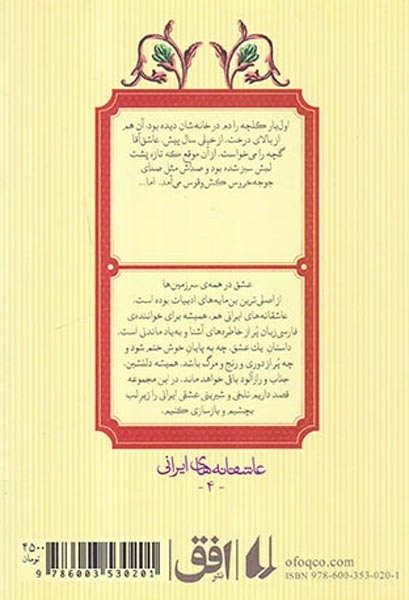 اول‌بار گلچه را دم در خانه‌شان دیده بود، آن هم
از بالای درخت. از خیلی سال پیش، عاشق آقا
گلچه را می‌خواست. از آن موقع که تازه پشت
لبش سبز شده بود و صداش مثل صدای
جوجه‌خروس کش‌و‌قوس می‌آمد. اما...
عشق در همه‌ی سرزمین‌ها
از اصلی‌ترین بن‌مایه‌های ادبیات بوده است.
عاشقانه‌های ایرانی هم، همیشه برای خواننده‌ی
فارسی‌زبان پُر از خاطره‌های آشنا و به‌یادماندنی است.
داستانِ یک عشق، چه به پایان خوش ختم شود و
چه پُر از دوری و رنج و مرگ باشد، همیشه دلنشین،
جذاب و رازآلود باقی خواهد ماند. در این مجموعه
قصد داریم تلخی و شیرینی عشقی ایرانی را زیرِ لب
بچشیم و بازسازی کنیم.
عاشقانه‌های ایرانی
-۴-
۴۵۰۰
تومان
9 786003 530201
نشر افق
ofoqco.com
ISBN 978-600-353-020-1